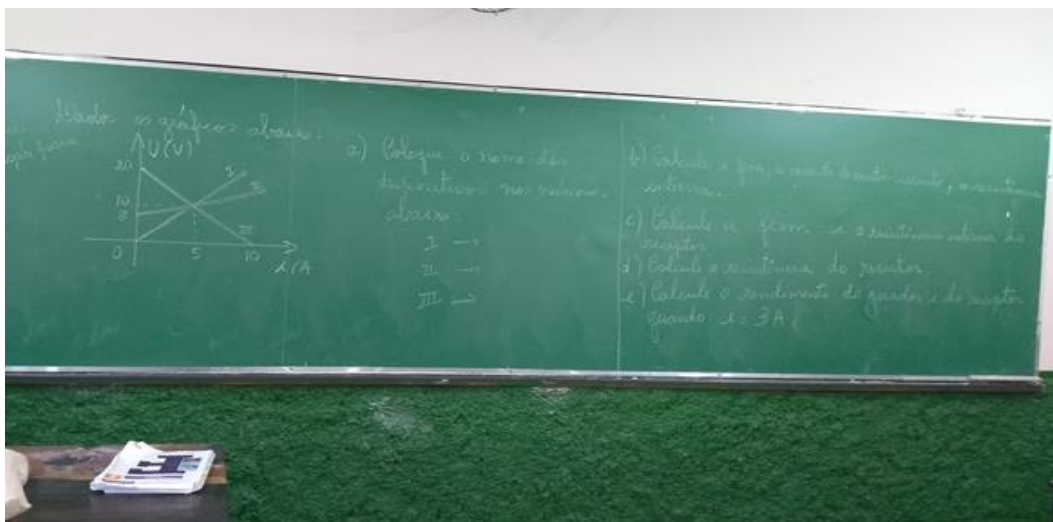 Dados os gráficos abaixo:
U(V)
20
10
8
0
5
10
i(A
I
II
III
a) Coloque o nome dos
dispositivos nos números
abaixo:
I →
II →
III →
b) Calcule a fem, a corrente de curto-circuito, a resistência
interna.
c) Calcule a fcem e a resistência interna do
receptor.
d) Calcule a resistência do resistor.
e) Calcule o rendimento do gerador e do receptor
quando i = 3A